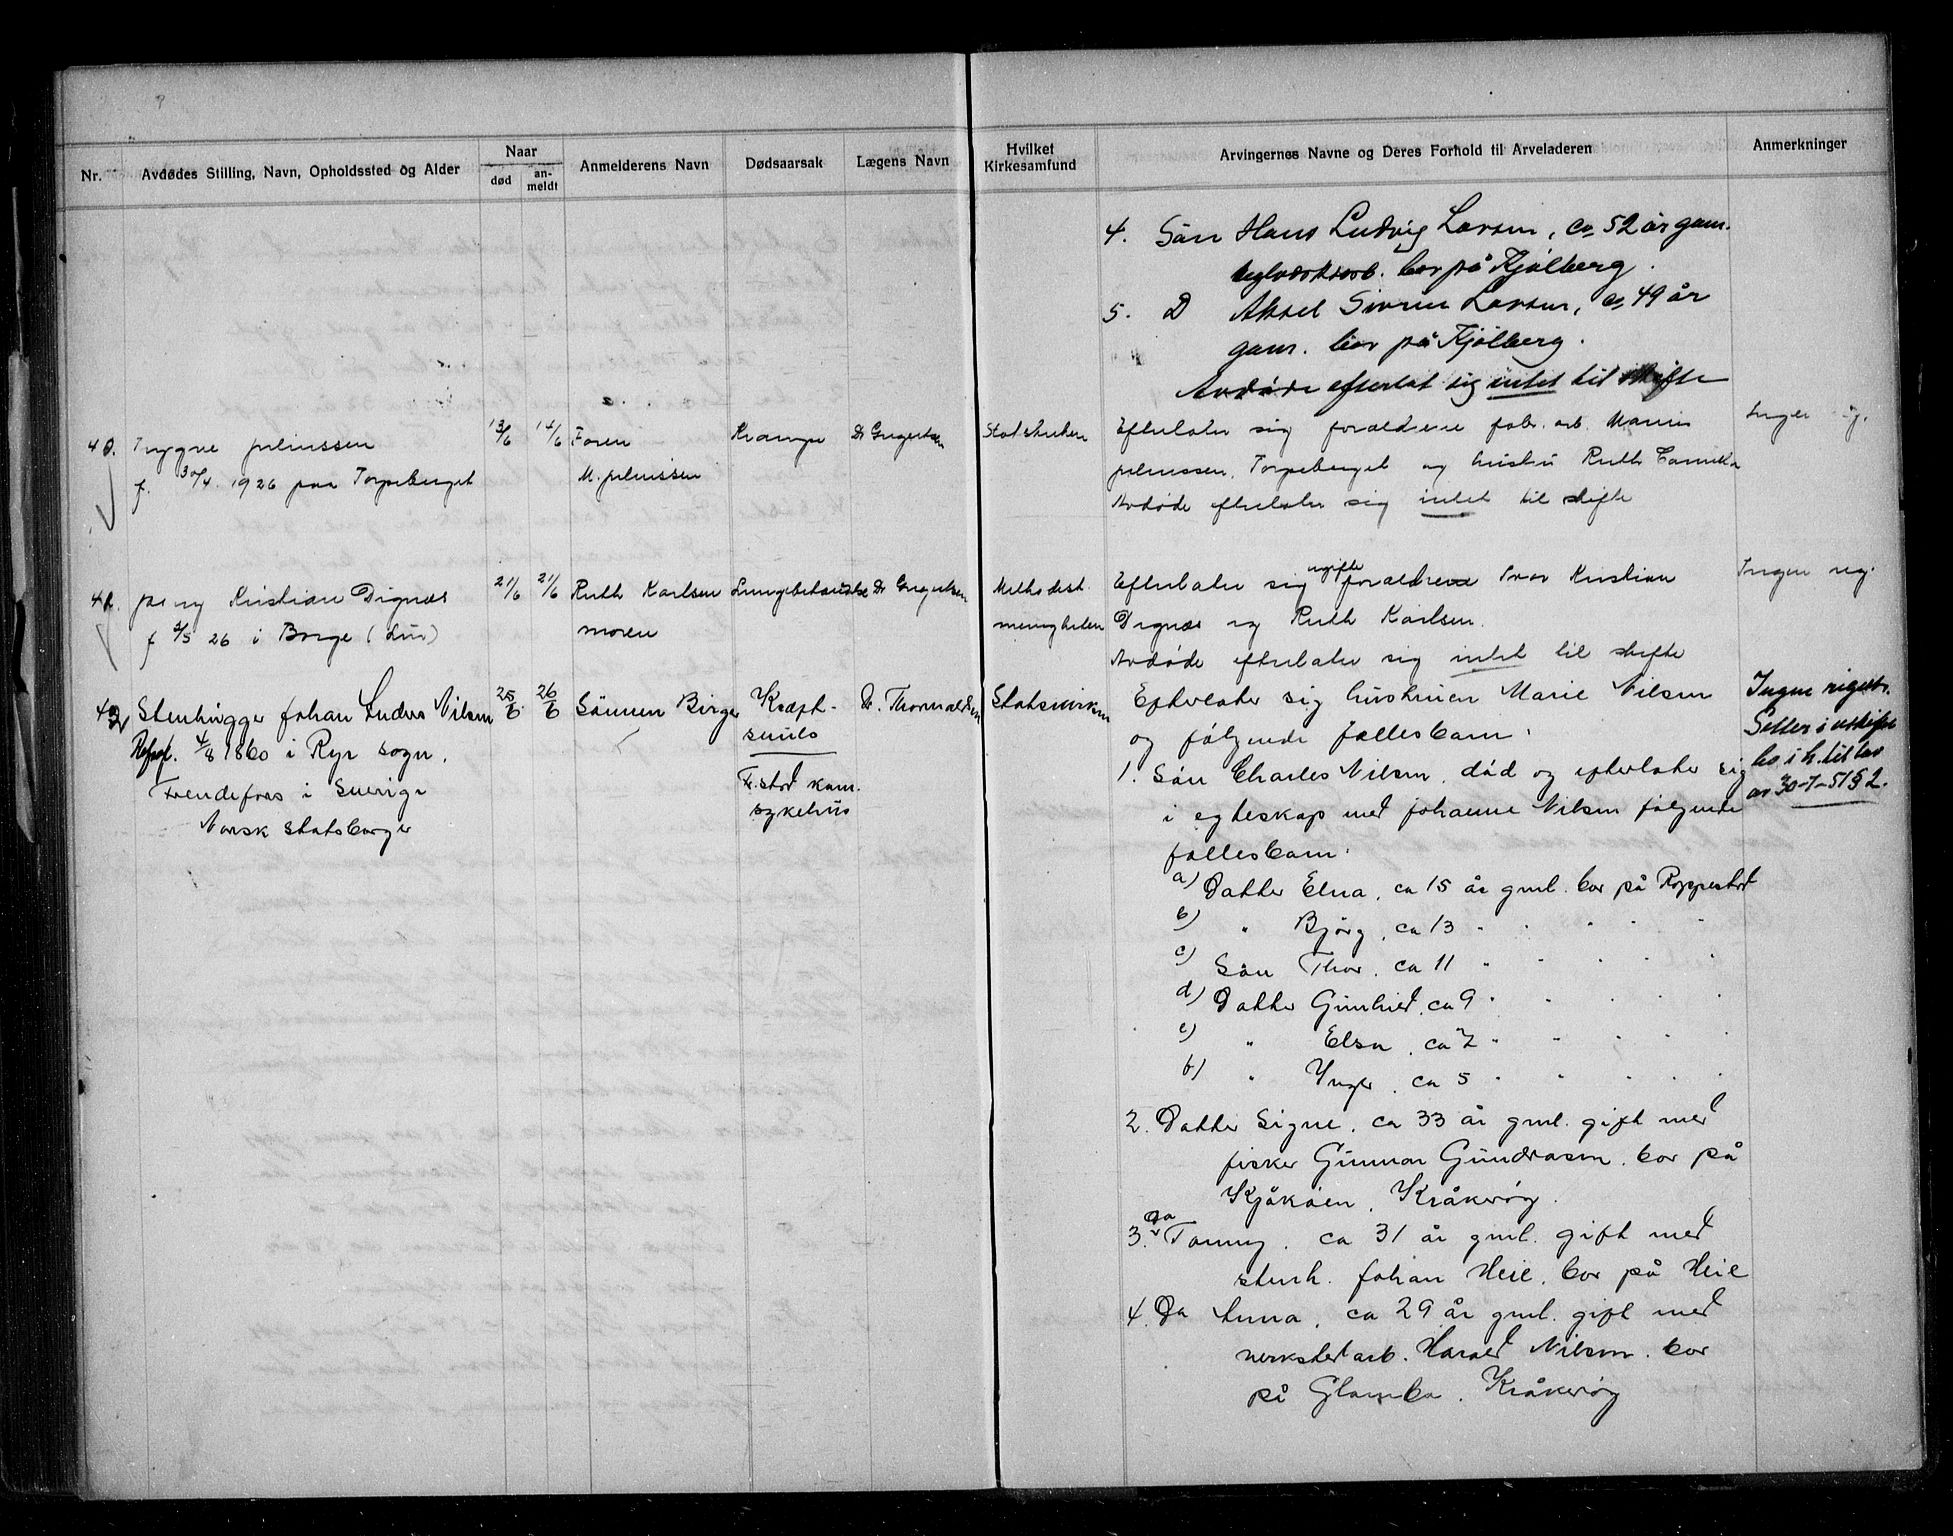 Nr.
Avdødes Stilling, Navn, Opholdssted og Alder
Naar
død
an-
meldt
Anmelderens Navn
Dødsaarsak
Lægens Navn
Hvilket
Kirkesamfund
Arvingernes Navne og Deres Forhold til Arveladeren
Anmerkninger
4. Søn Hans Ludvig Larsen, ca 52 år gam.
bor på Kjølberg.
5. D Aksel Larsen, ca 49 år
gam. bor på Kjølberg.
Avdøde efterlot sig intet til skifte
40.
Trygve
f. 30/4. 1926 paa Torpeberget
13/6
14/6
Faren
M.
Krampe
Dr
Statskirken
Efterlater sig forældrene fabr. arb. Marius
Torpeberget og hustru Ruth
Avdøde efterlater sig intet til skifte
Kristian Dignæs
26 i Borge (Lier)
21/6
21/6
Ruth Karlsen
moren
Lungebetændelse
Dr
Methodist
menigheten
Efterlater sig ugifte forældrene Kristian
Dignæs og Ruth Karlsen.
Avdøde efterlater sig intet til skifte
Ingen reg.
42
Stenhugger Johan Anders Nilsen
4/8 1860 i Ryr sogn,
Frendefors i Sverige
Norsk statsborger
25/6
26/6
Sønnen Birger
Kræft-
svuls
Fr.stad kom.
sykehus
Dr. Thorvaldsen
Statskirken
Efterlater sig hustruen Marie Nilsen
og følgende fællesbarn:
1. Søn Charles Nilsen, død og efterlater sig
i egteskap med Johanne Nilsen følgende
fællesbarn:
a) Datter Elna, ca 15 år gml. bor på Roppestad
b) " Bjørg, ca 13 " " " " "
c) Søn Thor, ca 11 " " " " "
d) Datter Gunhild, ca 9 " " " " "
e) " Elsa, ca 7 " " " " "
f) " Inger, ca 5 " " " " "
2. Datter Signe, ca 33 år gml. gift med
fisker Gunnar Gundrasen, bor på
Kjøkøen, Kråkerøy.
3. Da Fanny, ca 31 år gml. gift med
stenh. Johan Heie, bor på Heie
4. Da Anna, ca 29 år gml. gift med
verksted arb. Harald Nilsen, bor
på Glombo, Kråkerøy
Ingen registr.
Sitter i uskiftet
bo i h. til lov
av 30-7-51 § 2.